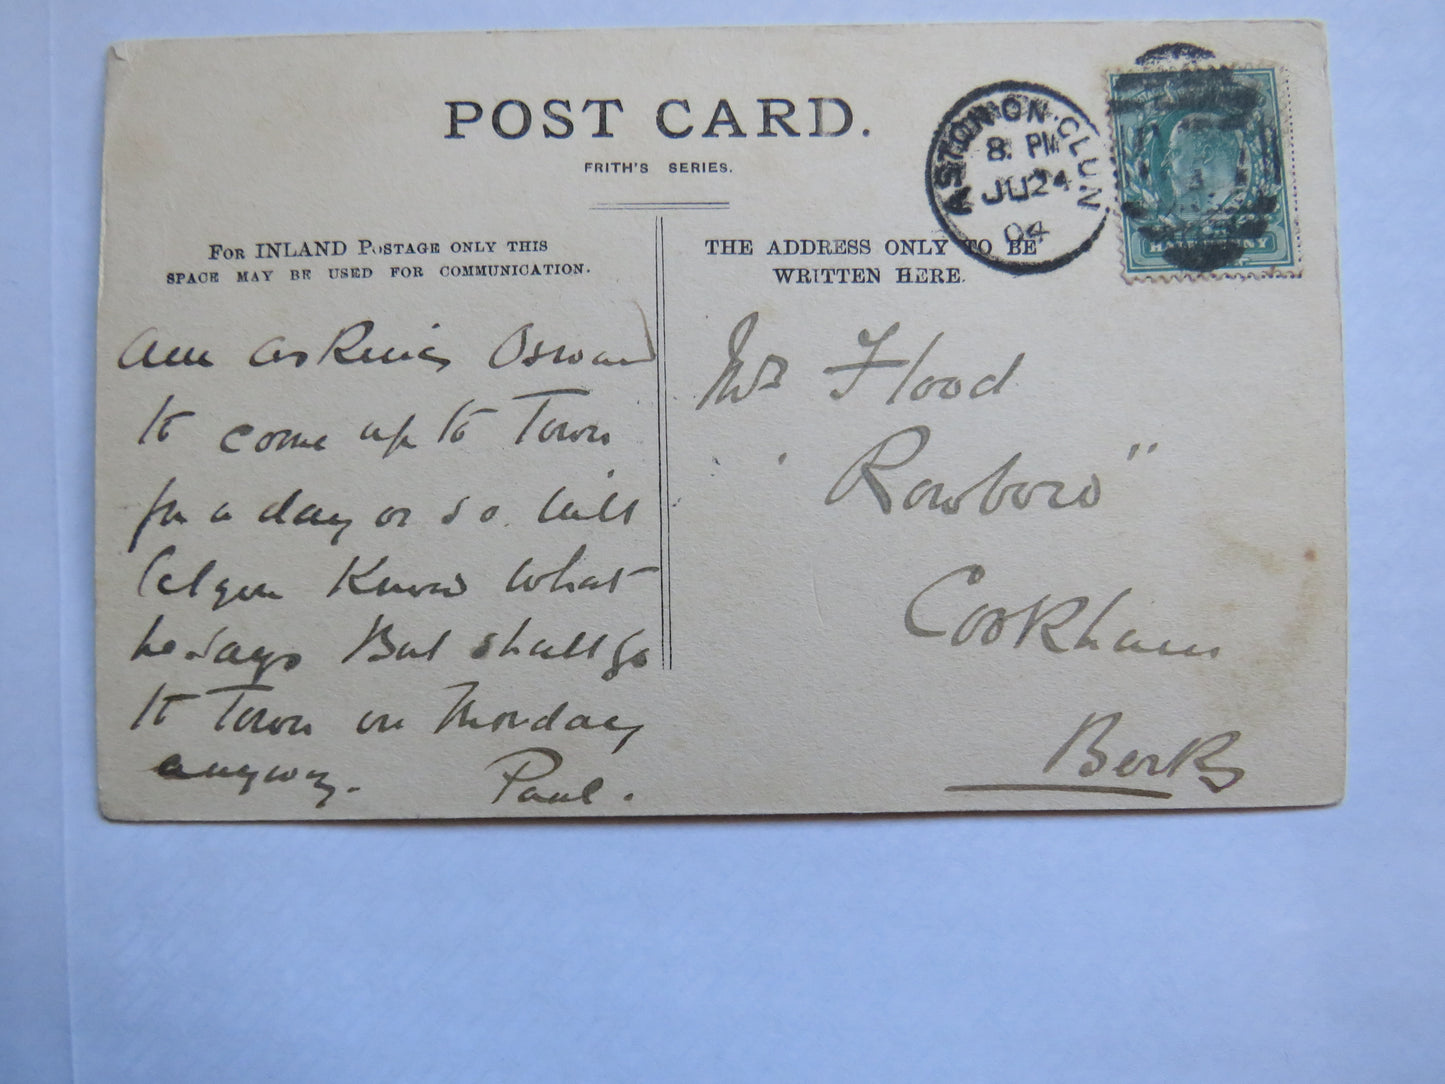 POST CARD.
FRITH'S SERIES.
FOR INLAND POSTAGE ONLY THIS
SPACE MAY BE USED FOR COMMUNICATION.
THE ADDRESS ONLY TO BE
WRITTEN HERE.
ASTON-ON-CLUN
8 PM
JU 24
04
HALFPENNY
Am asking Oswald
to come up to Town
for a day or so. Will
let you Know what
he says But shall go
to Town on Monday
anyway. Paul.
Flood
"Rowboro"
Cookham
Berks